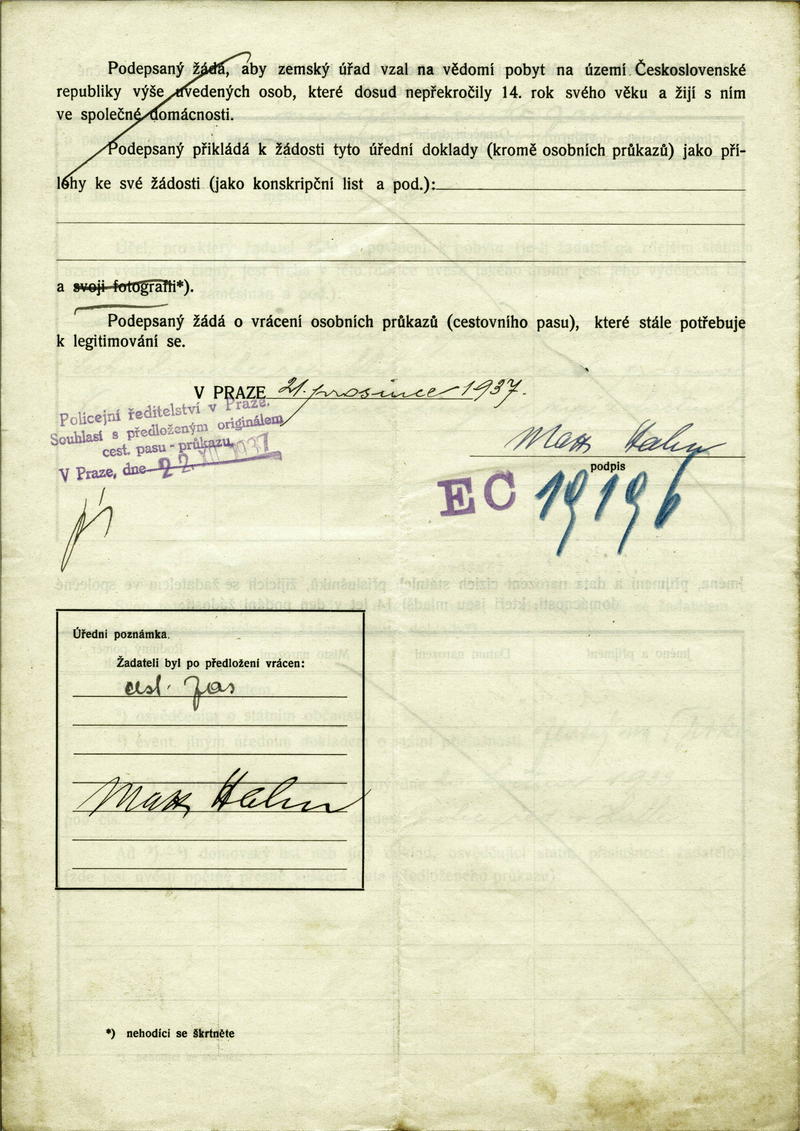 Podepsaný žádá, aby zemský úřad vzal na vědomí pobyt na území Československé
republiky výše uvedených osob, které dosud nepřekročily 14. rok svého věku a žijí s ním
ve společné domácnosti.
Podepsaný přikládá k žádosti tyto úřední doklady (kromě osobních průkazů) jako pří-
lohy ke své žádosti (jako konskripční list a pod.):
a svoji fotografii*).
Podepsaný žádá o vrácení osobních průkazů (cestovního pasu), které stále potřebuje
k legitimování se.
V PRAZE 21. prosince 1937.
Policejní ředitelství v Praze.
Souhlasí s předloženým originálem
cest. pasu - průkazu.
V Praze, dne 22 XII 1937
Max Hahn
podpis
EC 19196
Úřední poznámka.
Žadateli byl po předložení vrácen:
cest. pas
Max Hahn
*) nehodící se škrtněte